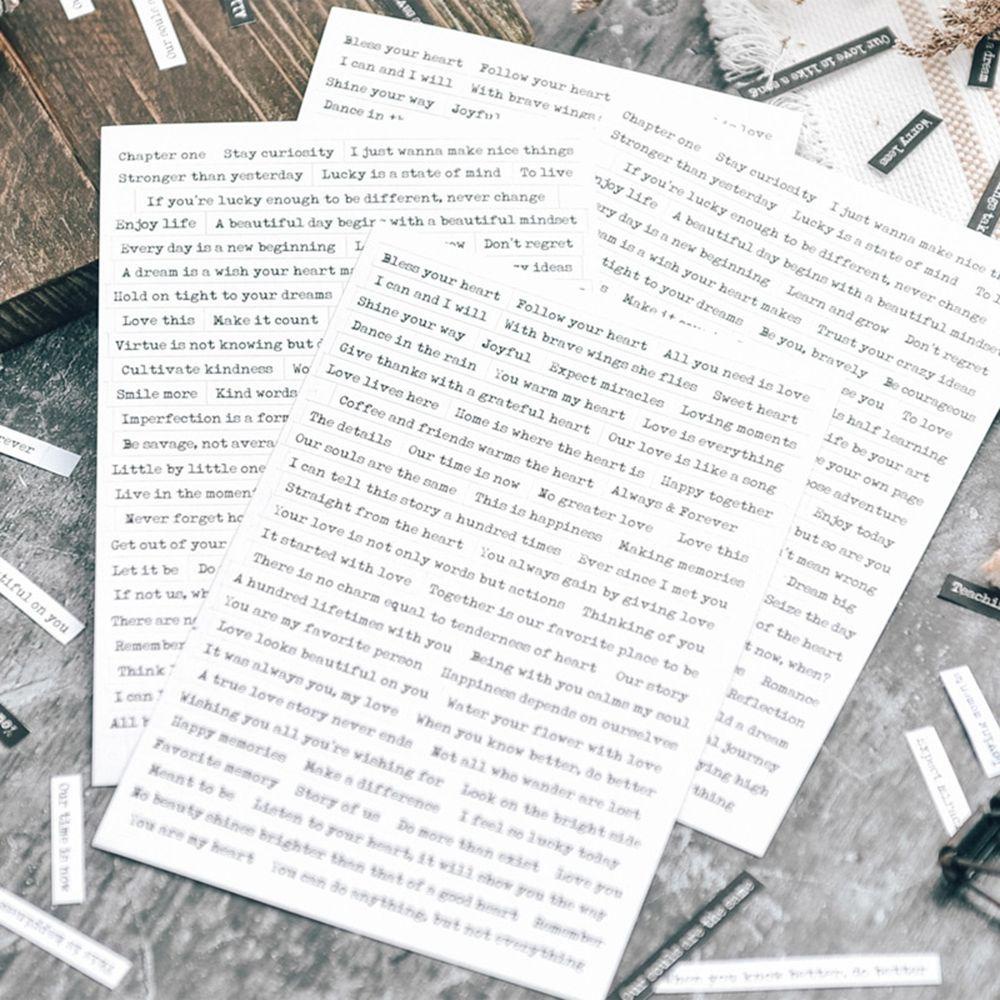 Bless your heart Follow your heart
I can and I will With brave wings
Shine your way Joyful
Dance in
love
Chapter one Stay curiosity I just wanna make nice things
Stronger than yesterday Lucky is a state of mind To live
If you're lucky enough to be different, never change
Enjoy life A beautiful day begin with a beautiful mindset
Every day is a new beginning Don't regret
A dream is a wish your heart ideas
Hold on tight to your dreams
Love this Make it count
Virtue is not knowing but
Cultivate kindness
Smile more Kind words
Imperfection is a
Be savage, not
Little by little one
Live in the
Never forget
Get out of your
Let it be
If not us,
There are
Remember
Think
I can
All
Chapter one Stay curiosity I just wanna make nice
Stronger than yesterday Lucky is a state of mind To
If you're lucky enough to be different, never change
Enjoy life A beautiful day begins with a beautiful mindset
day is a new beginning Learn and grow Don't regret
is a wish your heart makes Trust your crazy ideas
tight to your dreams Be you, bravely Be courageous
Make it
you To love
is half learning
life be your art
your own page
adventure
Enjoy today
but so are you
mean wrong
Dream big
Seize the day
of the heart
now, when?
Romance
Reflection
a dream
journey
high
thing
Bless your heart Follow your heart All you need is love
I can and I will With brave wings she flies Sweet heart
Shine your way Joyful Expect miracles Loving moments
Dance in the rain You warm my heart Love is everything
Give thanks with a grateful heart Our love is like a song
Love lives here Home is where the heart is Happy together
Coffee and friends warms the heart Always & Forever
The details Our time is now No greater love Love this
Our souls are the same This is happiness Making memories
I can tell this story a hundred times Ever since I met you
Straight from the heart You always gain by giving love
Your love is not only words but actions Thinking of you
It started with love Together is our favorite place to be
There is no charm equal to tenderness of heart Our story
A hundred lifetimes with you Being with you calms my soul
You are my favorite person Happiness depends on ourselves
Love looks beautiful on you Water your flower with love
It was always you, my love When you know better, do better
A true love story never ends Not all who wander are lost
Wishing you all you're wishing for Look on the bright side
Happy memories Make a difference I feel so lucky today
Favorite memory Story of us Do more than exist Love you
Meant to be Listen to your heart, it will show you the way
No beauty shines brighter than that of a good heart Remember
You are my heart You can do anything, but not everything
Our love is like a song
Worry less
a dream
All
Our souls
on you
Our time is now
This is happiness
Our souls are the same
When you know better, do better
Expect
Loving